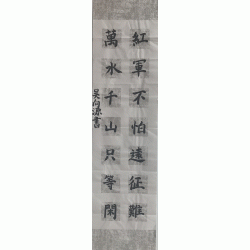 紅軍不怕遠征難
萬水千山只等閑
吳向源書